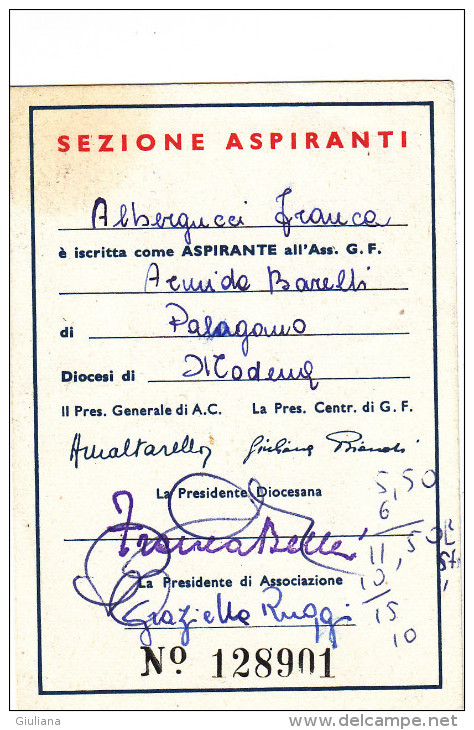 SEZIONE ASPIRANTI
Albergucci Franca
è iscritta come ASPIRANTE all'Ass. G. F.
Armida Barelli
di Palagano
Diocesi di Modena
Il Pres. Generale di A.C. La Pres. Centr. di G. F.
Amaltarello Giuliana Bianchi
5,50
La Presidente Diocesana
6
Franca Belli
11,50
La Presidente di Associazione
10
Graziella Ruggi
15
10
Nº 128901
Giuliana
www.delcampe.net